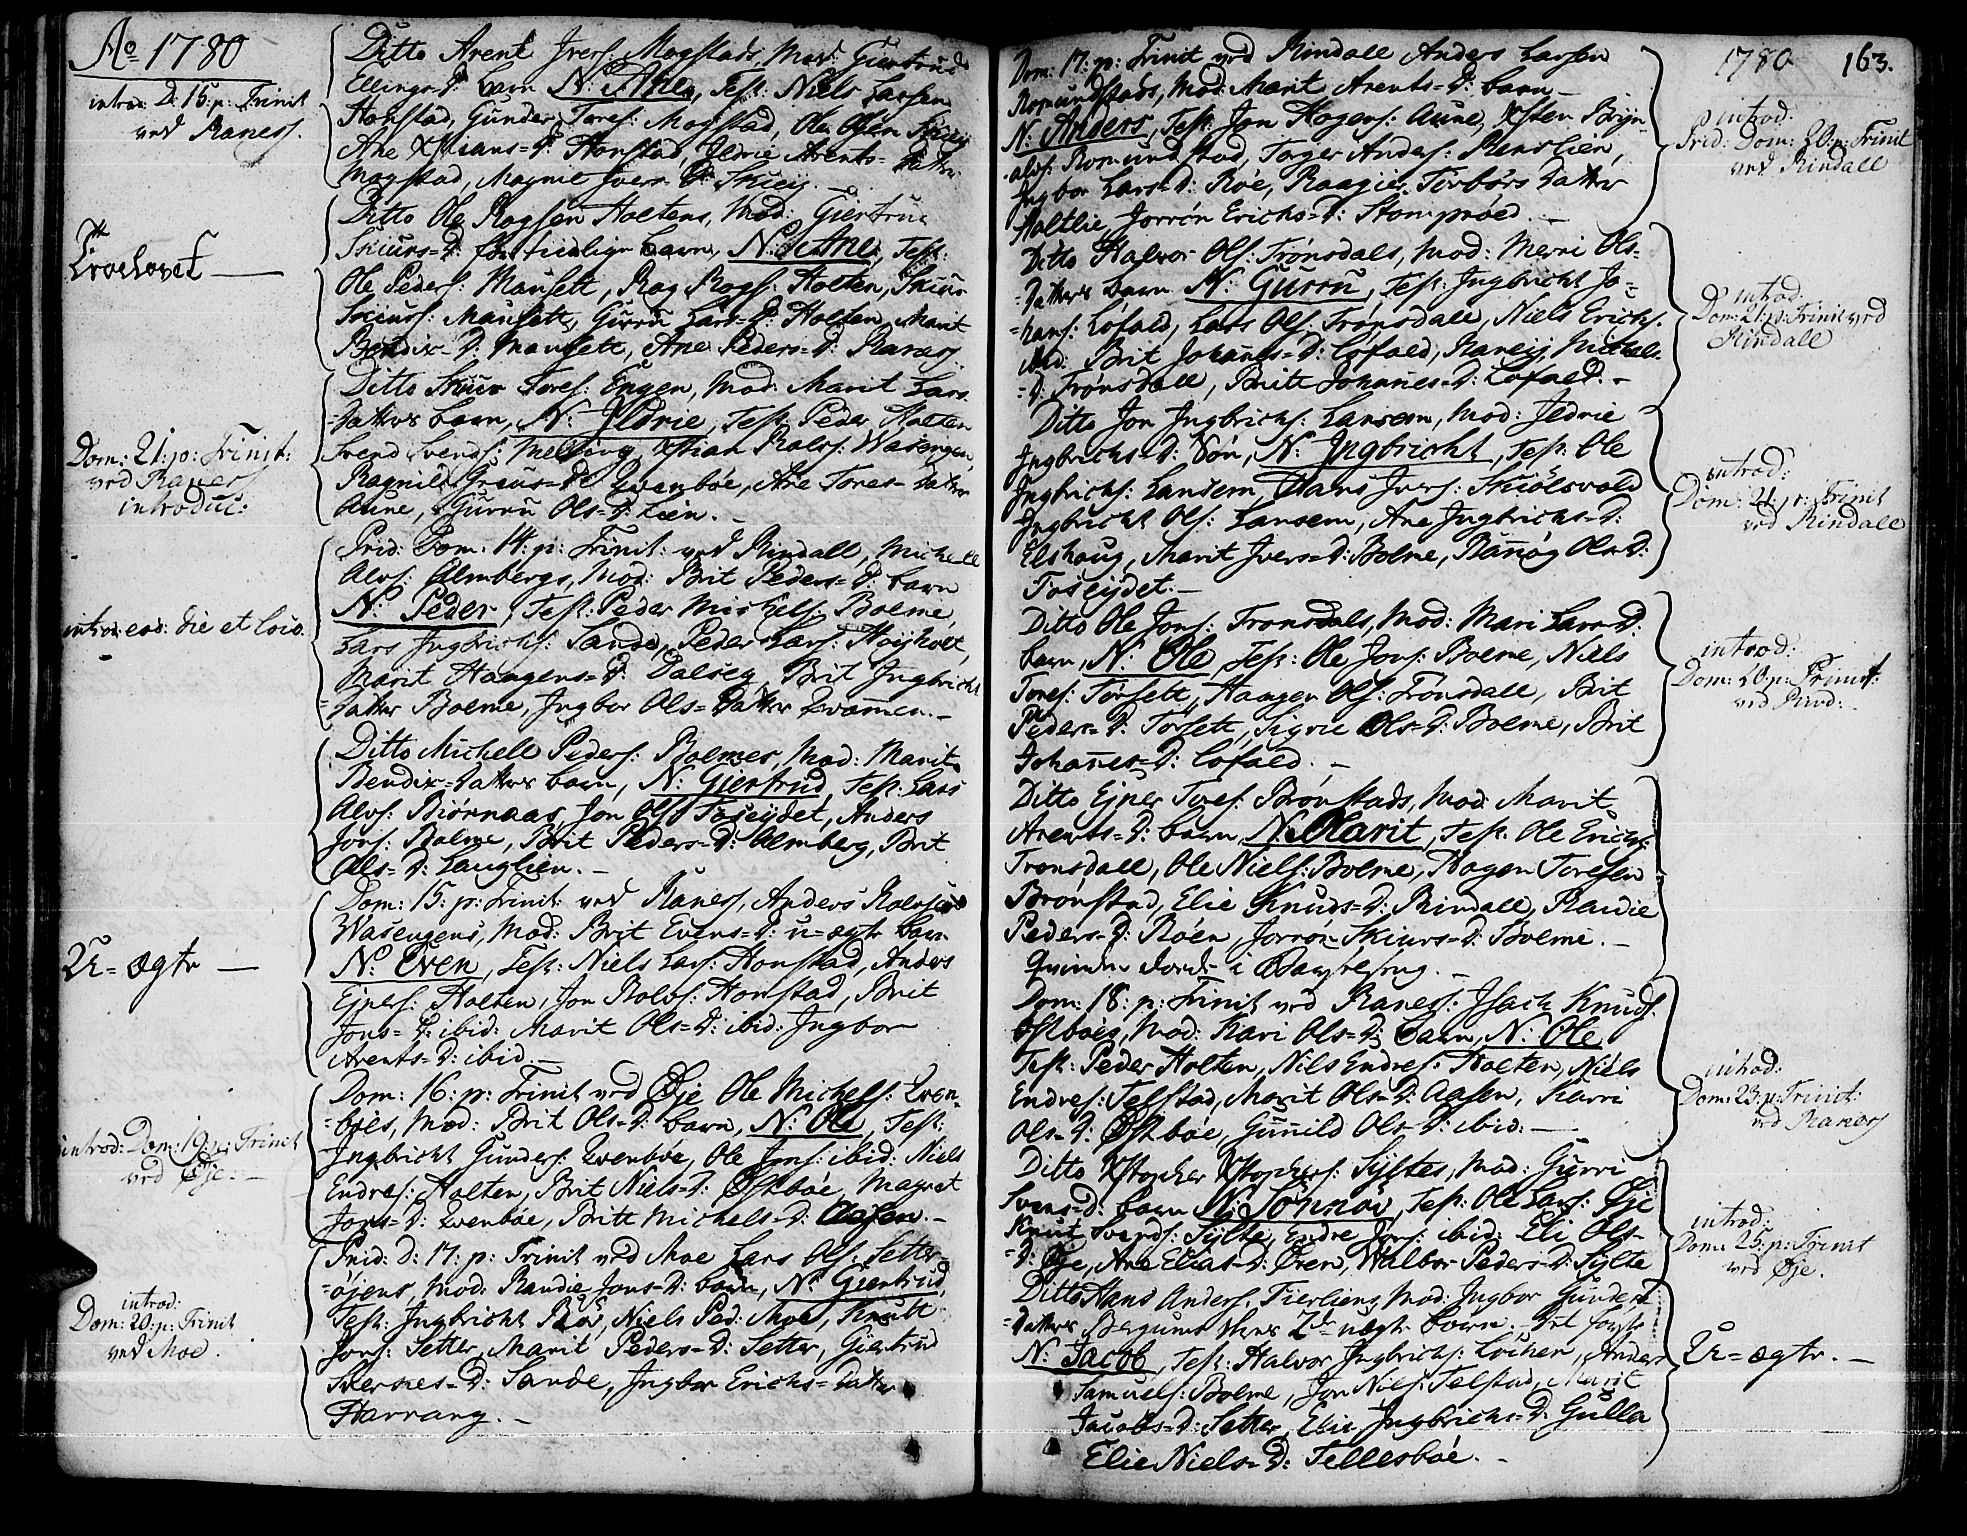 Ao 1780
introd: D: 15: p: Trinit
ved Raness.
Ditto Arent Ivers: Mogstads, Mod: Giertrud
Ellings=D: barn N: Ane, Test: Niels Larsen
Honstad, Gunder Tores: Mogstad, Ole Olsen
Ane Xstians=D: Honstad, Ildrie Arents=Datter
Mogstad, Magnil Ivers=D: Skieij.
Troelovet
Ditto Ole Rogsen Holtens, Mod: Giertrud
Skiurs=D: for tiidlige barn, N: Ane, Test:
Ole Peders: Mauset, Rog Rogs: Holten, Skiur
Skiurs: Mausett, Gurru Lars=D: Holten, Marit
Bendix=D: Mausett, Ane Peders=D: Raness.
Dom: 21: p: Trinit:
ved Raness
introduc:
Ditto Skiur Tores: Engen, Mod: Marit Lars
=Datters barn, N: Ildrie, Test: Peder Holten
Svend Svends: Melbing, Xstian Rolvs: Wasengen,
Ragnild Greus=D: Qvenbøe, Ane Tores=Datter
Aune, Gurru Ols=D: Lien.
introd: eod: die et loco.
Prid: Dom: 14: p: Trinit: ved Rindall, Michell
Alvs: Almbergs, Mod: Brit Peders=D: barn
N: Peder, Test: Peder Michels: Bolme,
Lars Ingbrichs: Sande, Peder Lars: Hoijholt,
Marit Haagens=D: Dalseg, Brit Ingbricht
=Datter Bolme, Ingbor Ols=Datter Qvammen.
Ditto Michell Peders: Bolmes, Mod: Marit
Bendix=Datters barn, N: Giertrud, Test: Lars
Alvs: Biørnaas, Jon Ols: Foseijdet, Anders
Jons: Bolme, Brit Peders=D: Almberg, Brit
Ols=D: Langlien.
U=ægte
Dom: 15: p: Trinit: ved Raness, Anders Rolvsens
Wasengens, Mod: Brit Evens=D: u=ægte barn
N: Even, Test: Niels Lars: Honstad, Anders
Ejners: Holten, Jon Rolvs: Honstad, Brit
Jons=D: ibid: Marit Ols=D: ibid: Ingbor
Arents=D: ibid.
introd: Dom: 19: p: Trinit
ved Øje.
Dom: 16: p: Trinit ved Øje Ole Michels: Qven-
=bøes, Mod: Brit Ols=D: barn, N: Ole, Test:
Ingbricht Gunders: Qvenbøe, Ole Jons: ibid: Niels
Endres: Holten, Brit Niels=D: Østbøe, Magret
Jons=D: Qvenbøe, Britt Michels=D: Aasen.
introd:
Dom: 20: p: Trinit
ved Moe.
Prid: D: 17: p: Trinit ved Moe Lars Ols: Setter
=øjens, Mod: Randie Jons=D: barn, N: Giertrud,
Test: Ingbricht Bør, Niels Ped: Moe, Knutt
Jons: Setter, Marit Peders=D: Setter, Giertrud
Sverkes=D: Sande, Ingbor Erichs=Datter
Harrang.
1780 163.
Dom: 17: p: Trinit ved Rindall Anders Larsen
Romundstads, Mod: Marit Arents=D: barn
N: Anders, Test: Jon Hogens: Aune, Xsten Brÿn-
=alvs: Romundstad, Torger Anders: Renslien,
Ingbor Lars=D: Røe, Raagie Torbørs Datter
Holtlie, Jorrøn Erichs=D: Stomprøed.
introd.
Prid: Dom: 20: p: Trinit
ved Rindall
Ditto Halvor Ols: Trønsdals, Mod: Merri Ols-
=Datters barn N: Gurru, Test: Ingbricht Jo-
=hans: Løfald, Lars Ols: Trønsdall, Niels Erichs.
ibid: Brit Johannes=D: Lofald, Raneij Michels
=D: Trønsdall, Britt Johannes=D: Lofald.
introd.
Dom: 21: p: Trinit ved
Rindall
Ditto Jon Ingbrichs: Lansem, Mod: Ildrie
Ingbrichs=D: Søn, N: Ingbricht, Test: Ole
Ingbrichs: Lansem, Hans Ivers: Skiølsvold
Ingbricht Ols: Lansem, Ane Ingbrichs=D:
Elshaug, Marit Ivers=D: Bolme, Rannøg Ols=D:
Foseijdet.
introd:
Dom: 21: p: Trinit
ved Rindall
Ditto Ole Jons: Tronsdals, Mod: Mari Lars=D:
barn, N: Ole, Test: Ole Jons: Bolme, Niels
Tores: Torsett, Haagen Ols: Trønsdall, Brit
Peders=D: Torsett, Sigrie Ols=D: Bolme, Brit
Johannes=D: Lofald.
introd:
Dom: 20: p: Trinit:
ved Rind:
Ditto Ejner Tores: Brønstads, Mod: Marit
Arents=D: barn, N: Marit, Test: Ole Erichs:
Tronsdall, Ole Niels: Bolme, Hagen Toresen
Brønstad, Elie Knuds=D: Rindall, Randie
Peders=D: Røen, Jorrøn Skiurs=D: Bolme.
Qvinden døde i Barselseng.
Dom: 18: p: Trinit ved Raness. Isach Knuds.
Østbøes, Mod: Kari Ols=D: Barn, N: Ole
Test: Peder Holten, Nils Endres: Holten, Niels
Endres: Telstad, Marit Ols=D: Aasen, Karri
Ols=D: Østbøe, Gunild Ols=D: ibid:
introd:
Dom: 23: p: Trinit:
ved Raness
Ditto Xstopher Xstophers: Sÿltes, Mod: Gurri
Svens=D: barn N: Sønnøv, Test: Ole Lars: Øje
Knut Svends: Sÿlte, Endre Jons: ibid: Eli Ols-
=D: Øje, Ane Elias=D: Ören, Walbor Peders=D: Sÿlte
introd:
Dom: 25: p: Trinit
ved Øje.
Ditto Hans Anders: Fierliens, Mod: Ingbor Gunders
=Datter Bergums Deres 2de uægte børn. Det første
N: Jacob, Test: Halvor Ingbrichs: Løchen, Anders
Samuels: Bolme, Jon Nils: Telstad, Marit
Jacobs=D: Setter, Elie Ingbrichs=D: Gulla
Elie Niels=D: Tellesbøe.
U=ægte.